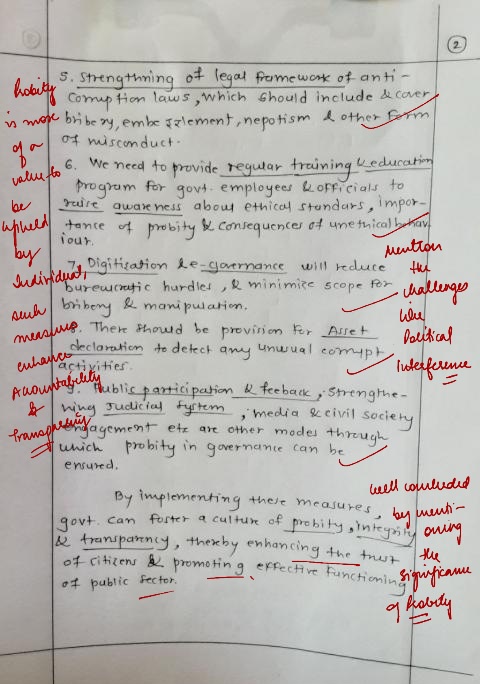 2
5. Strengthning of legal framework of anti-
Corruption laws, which should include & cover
bribery, embezzlement, nepotism & other form
of misconduct.
6. We need to provide regular training & education
program for govt. employees & officials to
raise awareness about ethical standars, impor-
tance of probity & consequences of unethical behav
iour.
7. Digitization & e-governance will reduce
bureucratic hurdles, & minimize scope for
bribery & manipulation.
8. There should be provision for Asset
declaration to detect any unusual corrupt
activities.
9. Public participation & feeback, strengthe-
ning Judicial System, media & civil society
engagement etc are other modes through
which probity in governance can be
ensured.
By implementing these measures,
govt. can foster a culture of probity, integrity
& transparency, thereby enhancing the trust
of citizens & promoting effective functioning
of public sector.
Probity
is more
of a
value to
be
upheld
by
Individual,
such
measures
enhance
Accountability
&
Transparency
mention
the
challenges
like
Political
Interference
well concluded
by menti-
oning
the
significance
of Probity